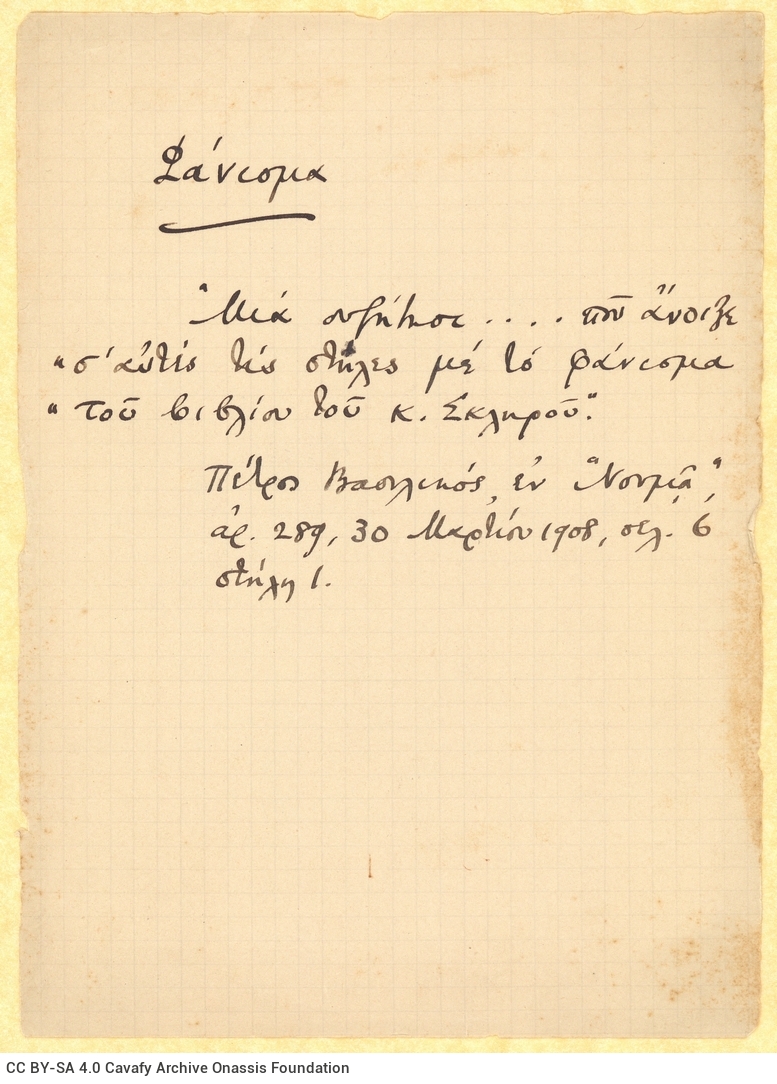 Φάνισμα
"Μιά συζήτησι .... ποῦ ἄνοιξε
"σ' αὐτές τές στήλες μέ τό φάνισμα
"τοῦ βιβλίου τοῦ κ. Σκληροῦ".
Πέτρος Βασιλικός, ἐν "Νουμᾶ",
ἀρ. 289, 30 Μαρτίου 1908, σελ. 6
στήλη 1.
CC BY-SA 4.0 Cavafy Archive Onassis Foundation